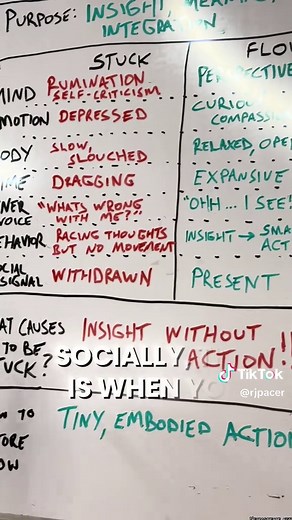 PURPOSE: INSIGHT,
INTEGRATION
STUCK FLO
MIND RUMINATION
SELF-CRITICISM
MOTION DEPRESSED CURIOU
COMPASSI
ODY SLOW,
SLOUCHED RELAXED, OPE
ME DRAGGING EXPANSIVE
NER
VOICE "WHATS WRONG
WITH ME?" "OHH... I SEE!
EHAVIOR RACING THOUGHTS
BUT NO MOVEMENT INSIGHT → SMA
ACT
CIAL
SIGNAL WITHDRAWN PRESENT
AT CAUSES
TO BE
UCK? INSIGHT WITHOUT
ACTION!!
SOCIALLY
IS WHEN YO
TikTok
@rjpacer
TO
TORE
OW TINY, EMBODIED ACTION